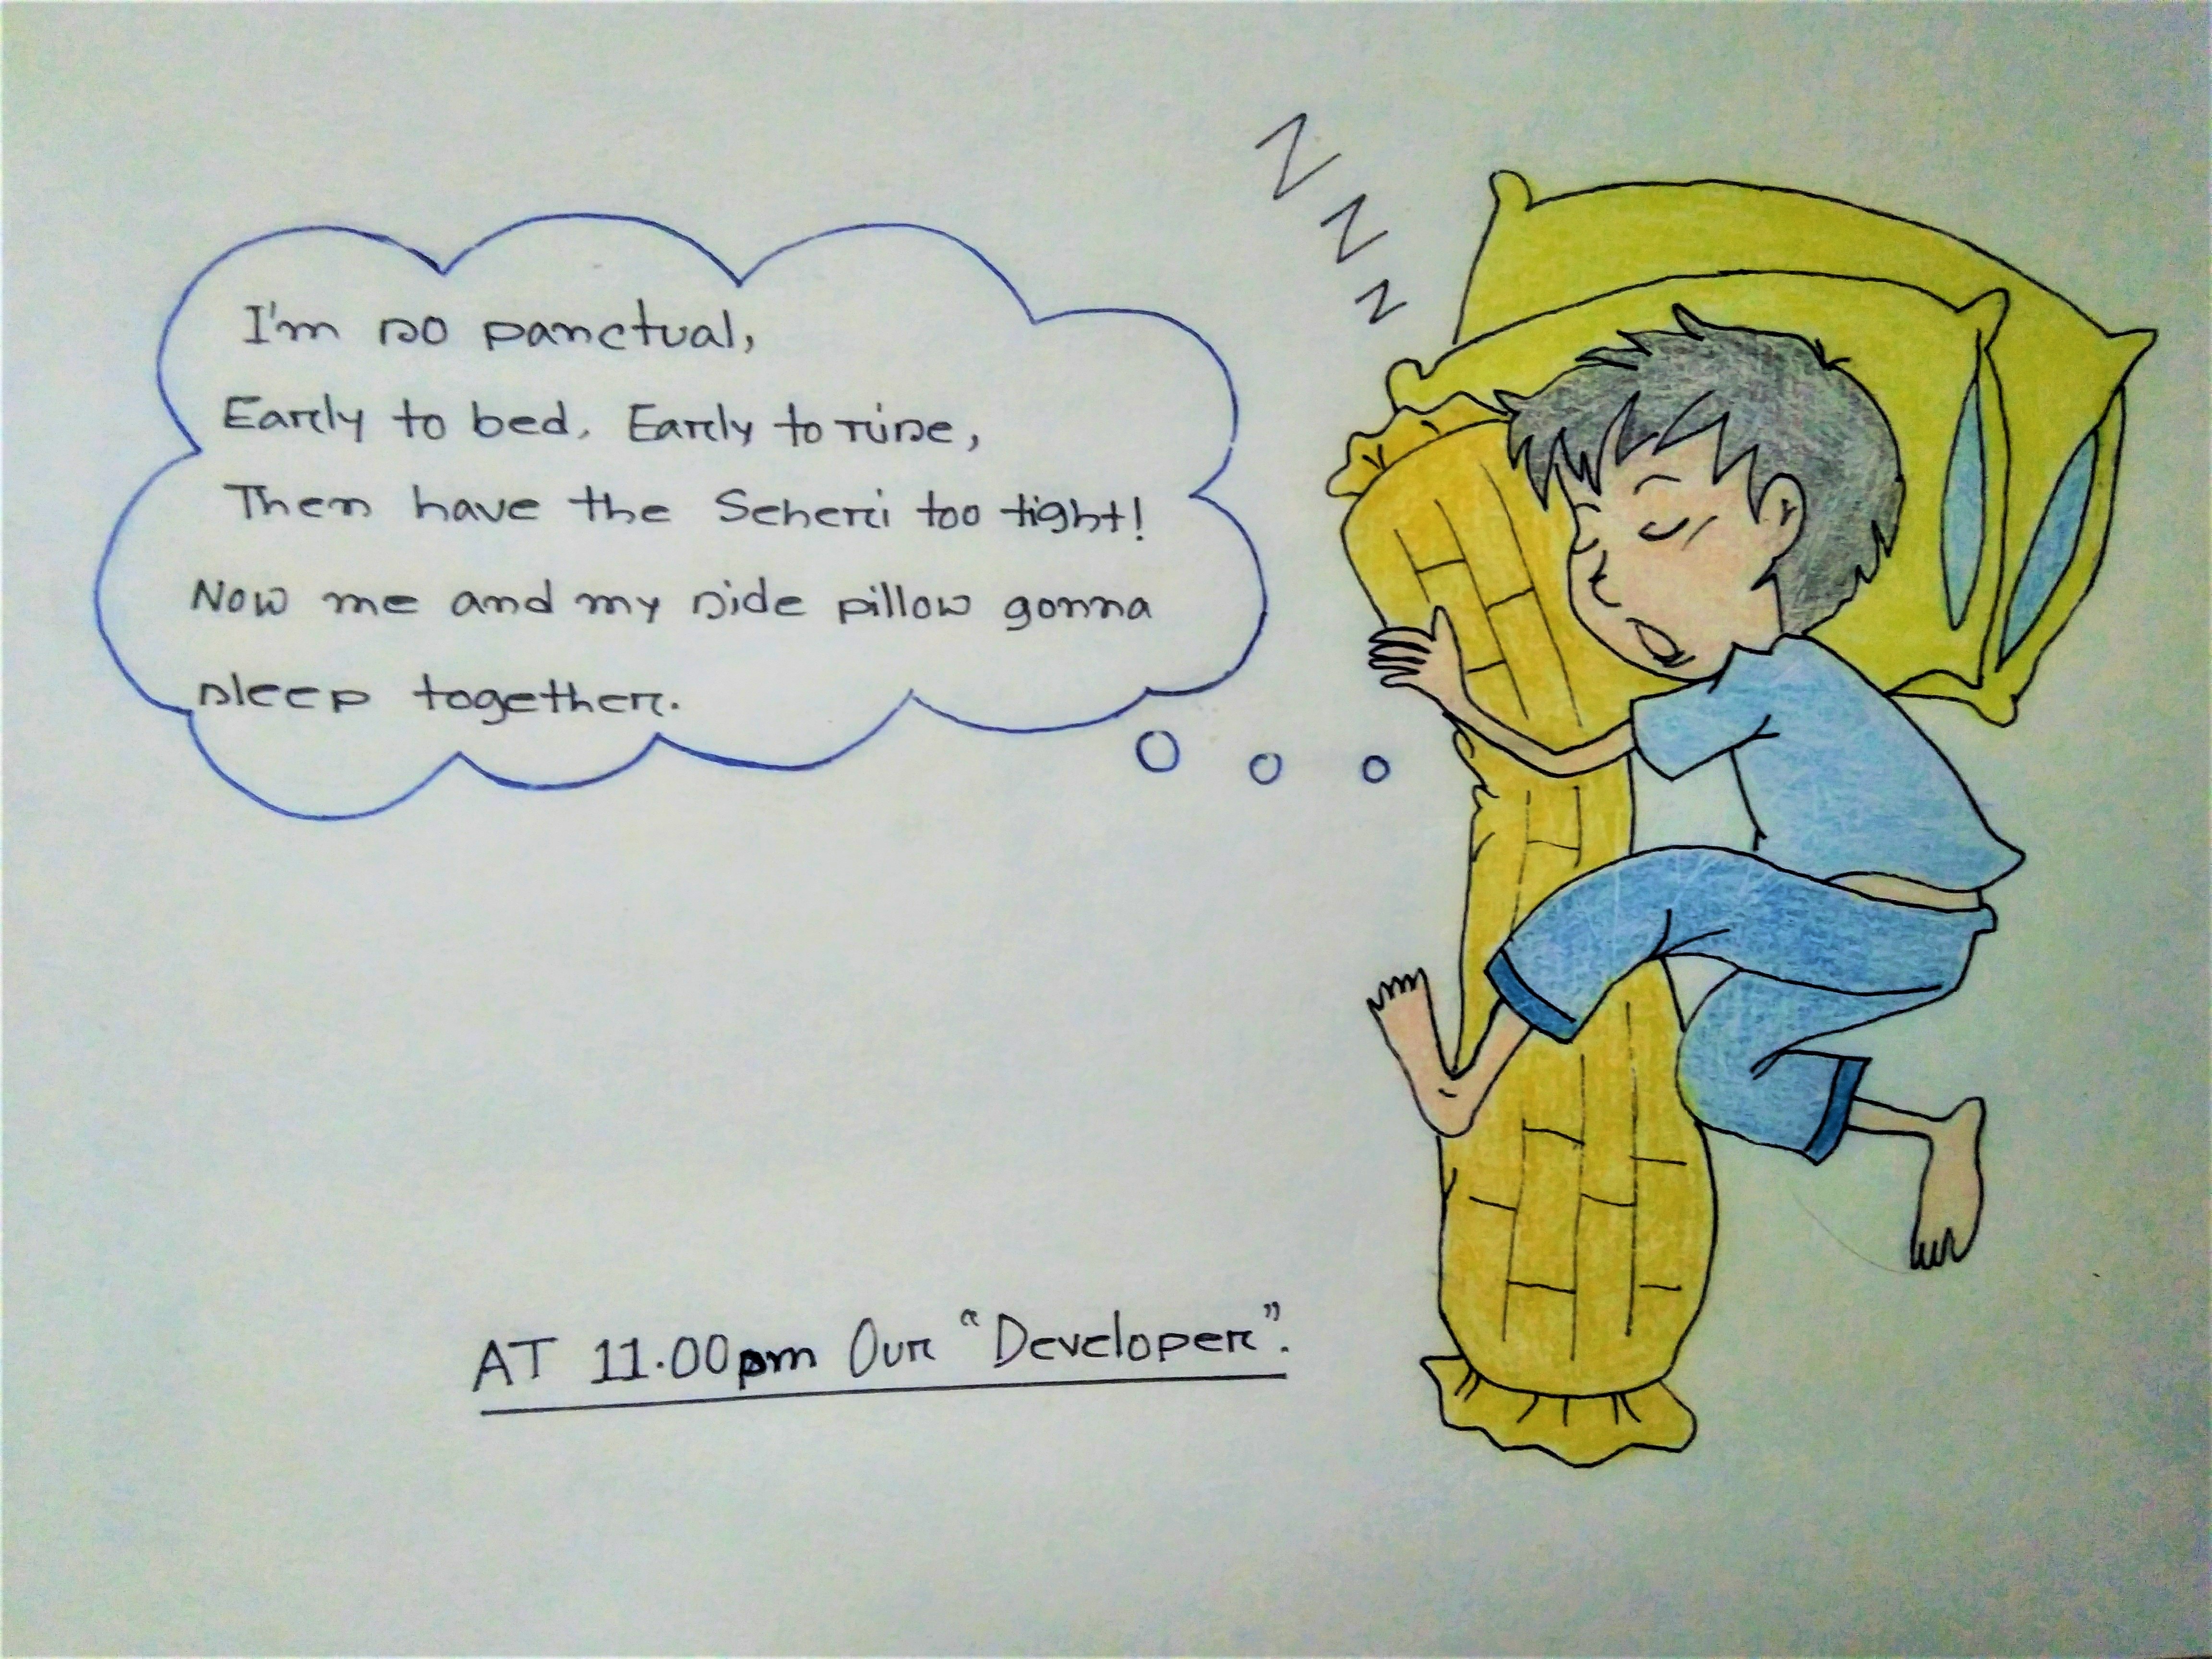 Z
Z
Z
I'm so panctual,
Early to bed. Early to rise,
Then have the Seheri too tight!
Now me and my side pillow gonna
sleep together.
AT 11.00pm Our "Developer".